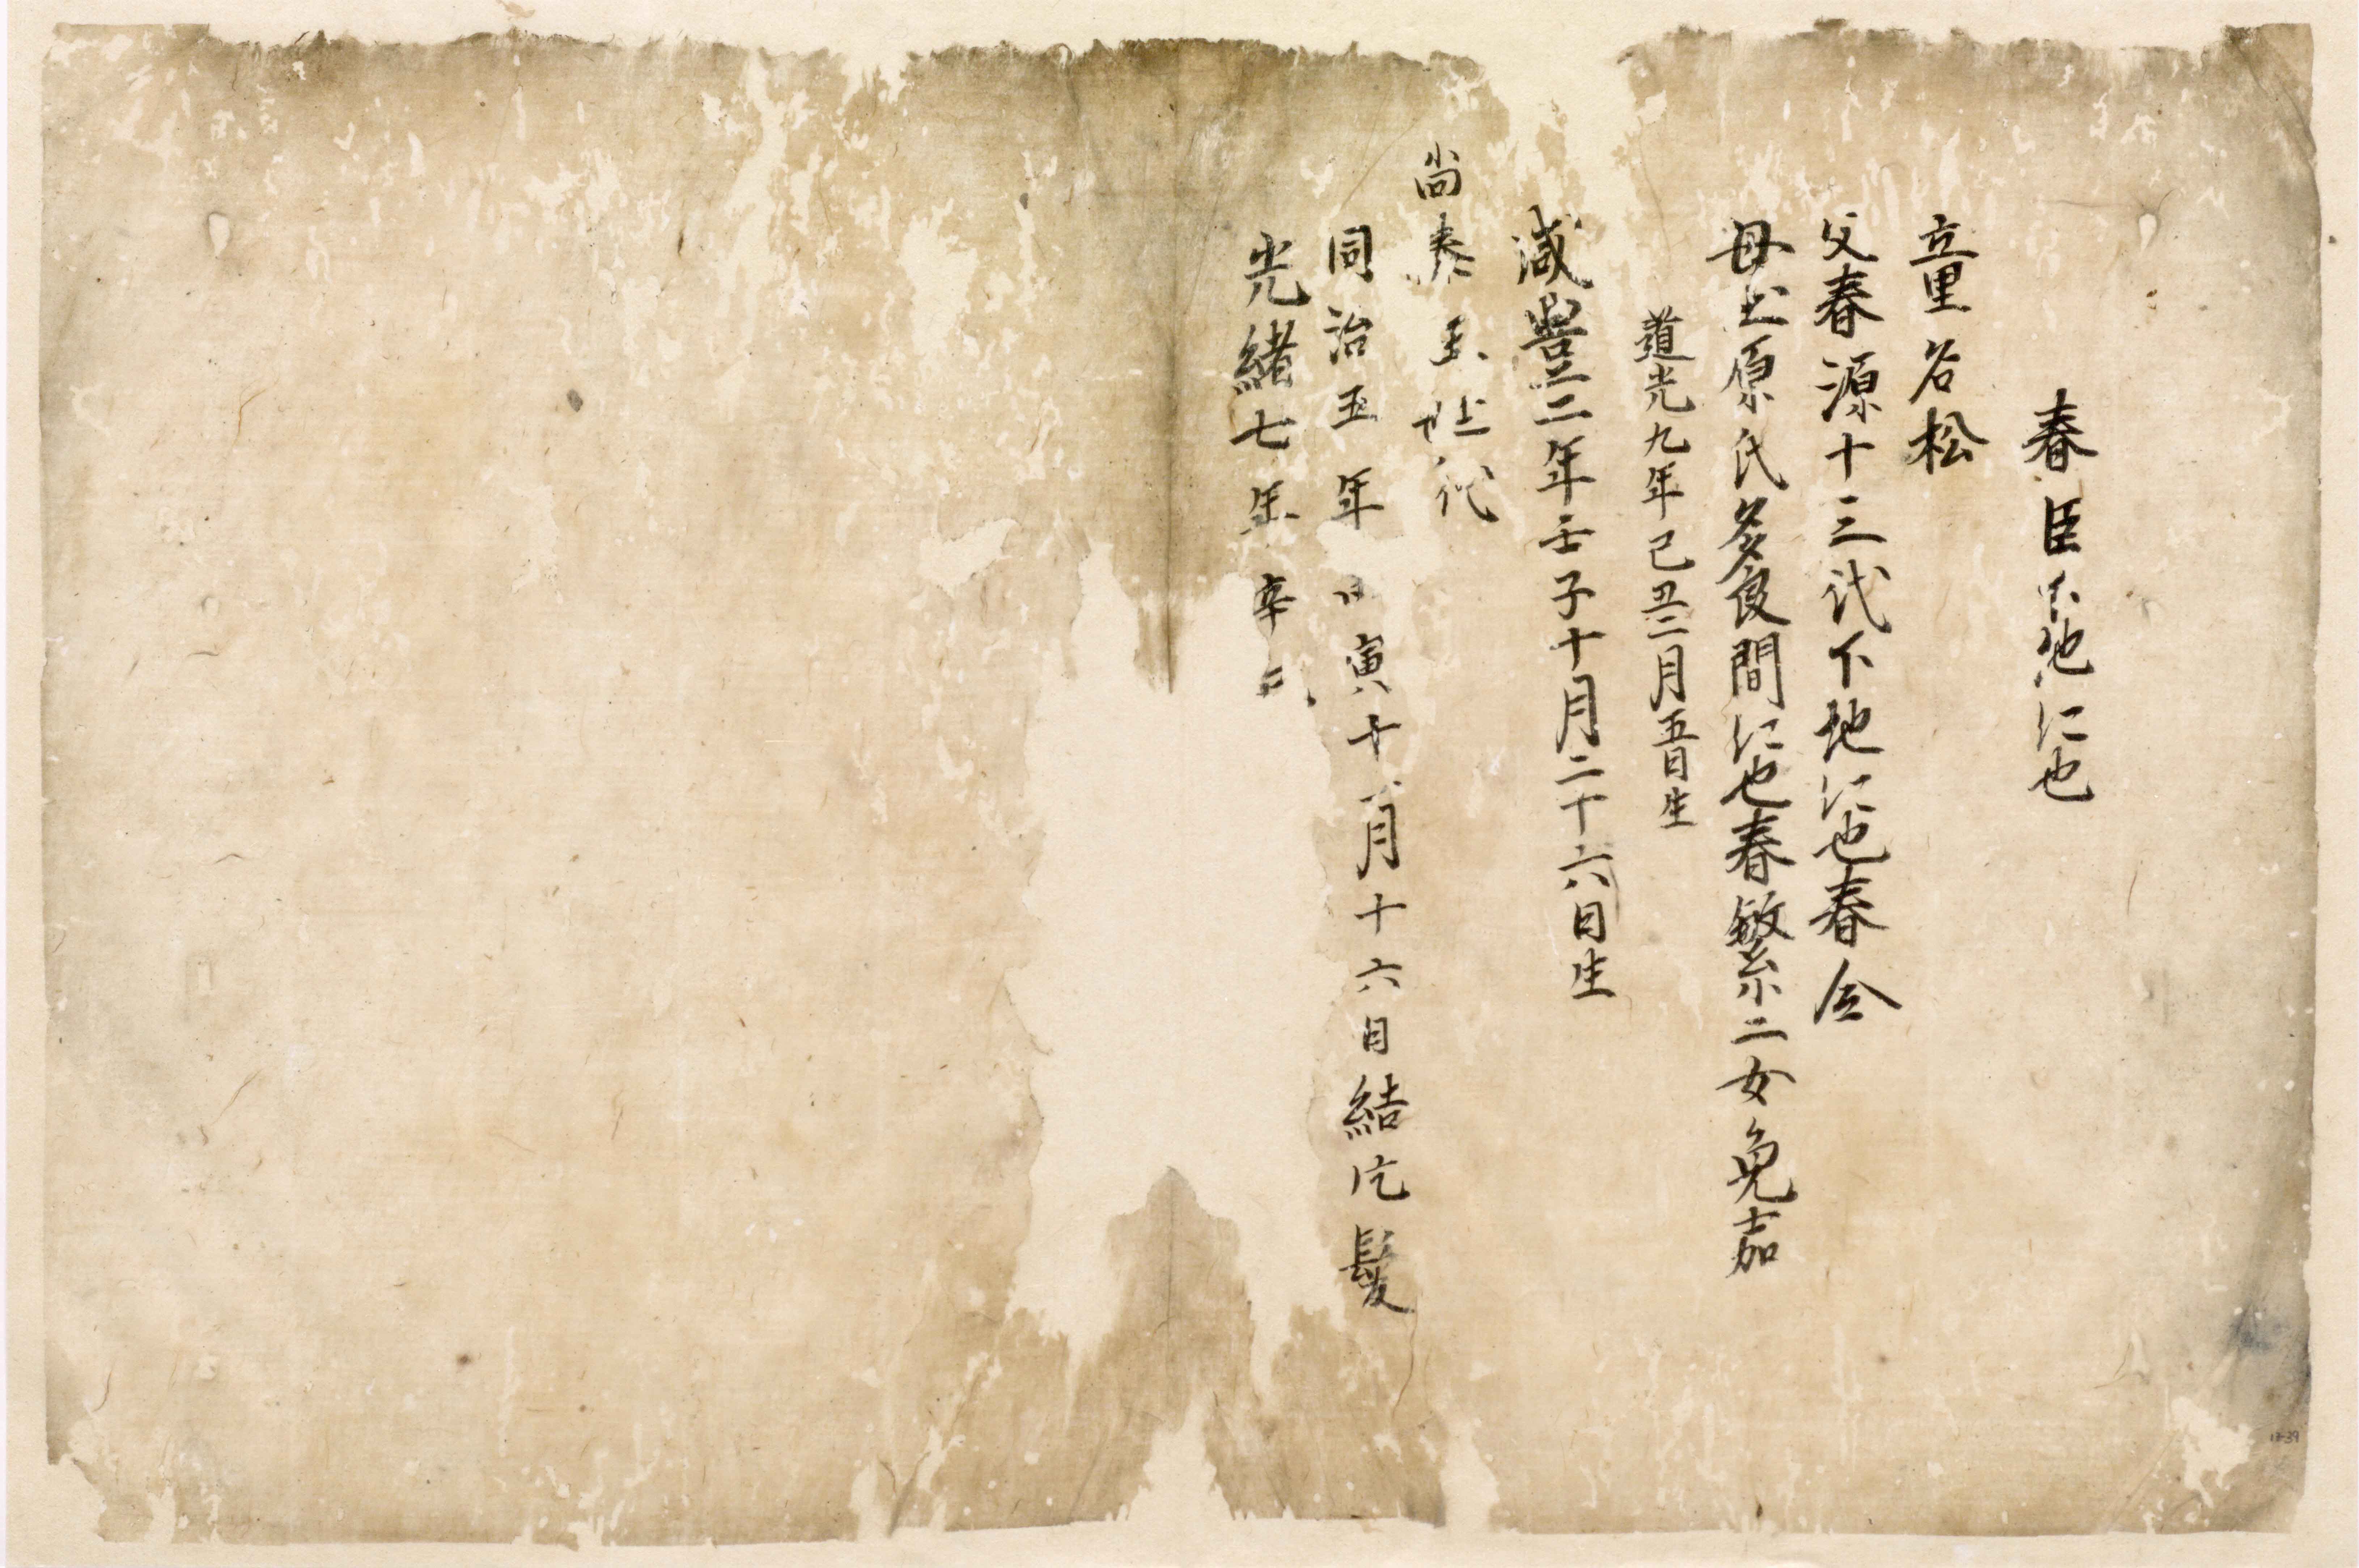 春臣 池仁也
童名松
父春源十三代下地仁也春令
母土原氏多良間仁也春繁二女免嘉
道光九年己丑二月五日生
咸豊二年壬子十月二十六日生
尚泰王世代
同治五年 寅十 月十六日結片髪
光緒七年辛
13-39